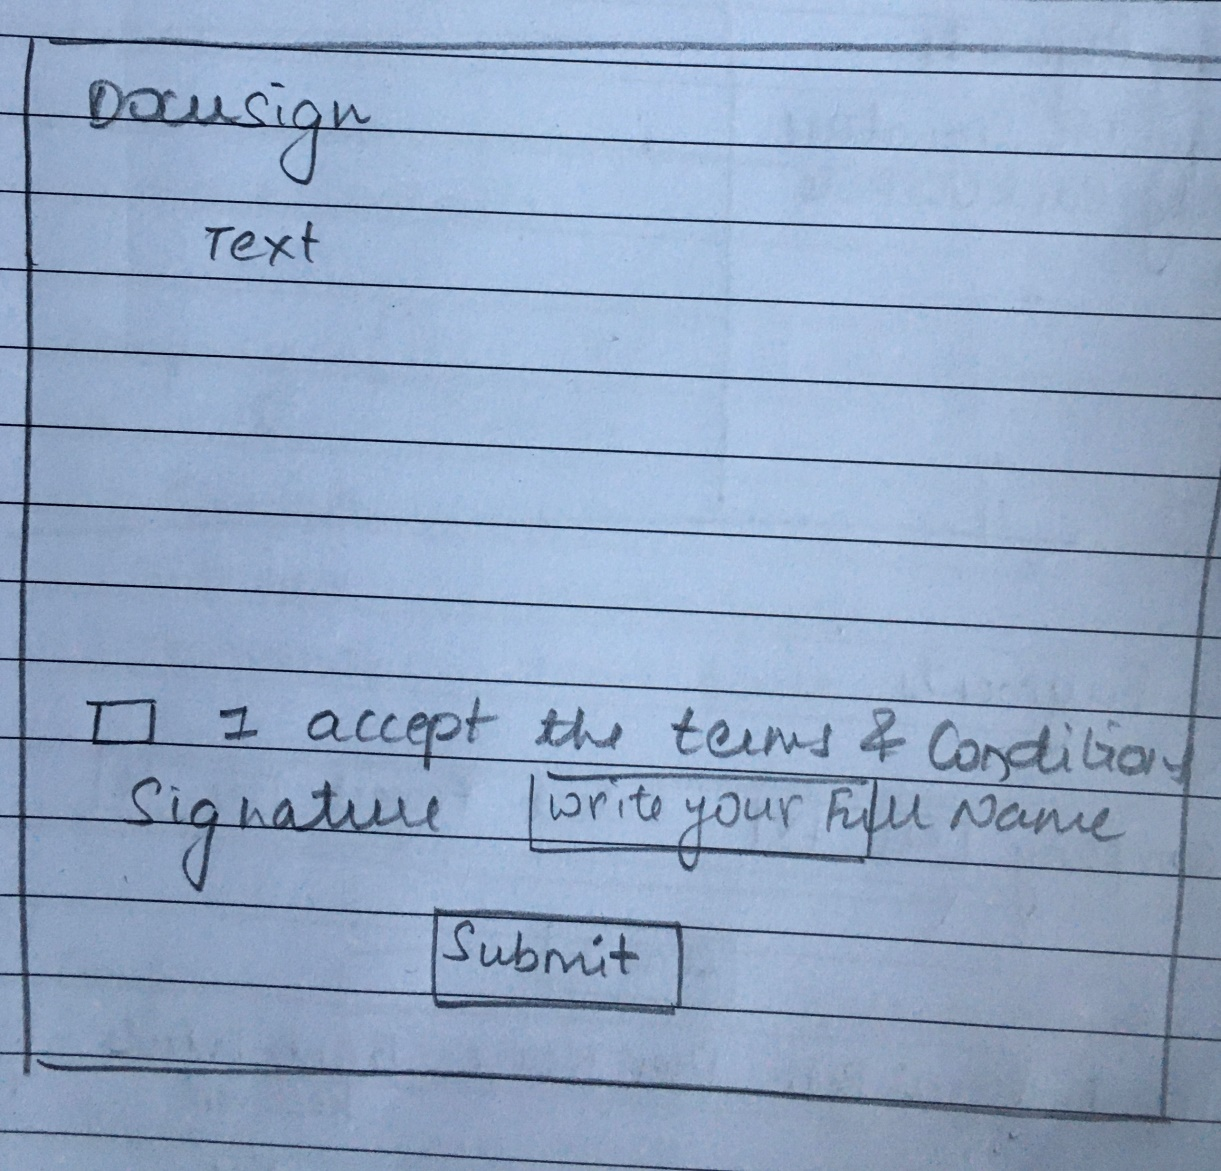 Docusign
Text
I accept the terms & Conditions
Signature Write your Full Name
Submit